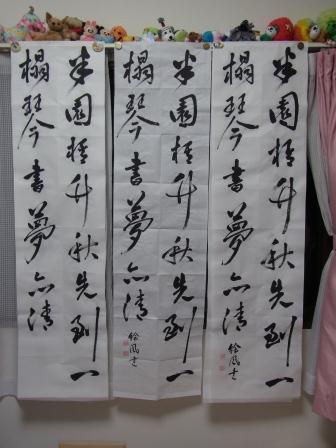 半園梧竹秋先到一
榻琴書夢亦清
絵風
半園梧竹秋先到一
榻琴書夢亦清
絵風
半園梧竹秋先到一
榻琴書夢亦清